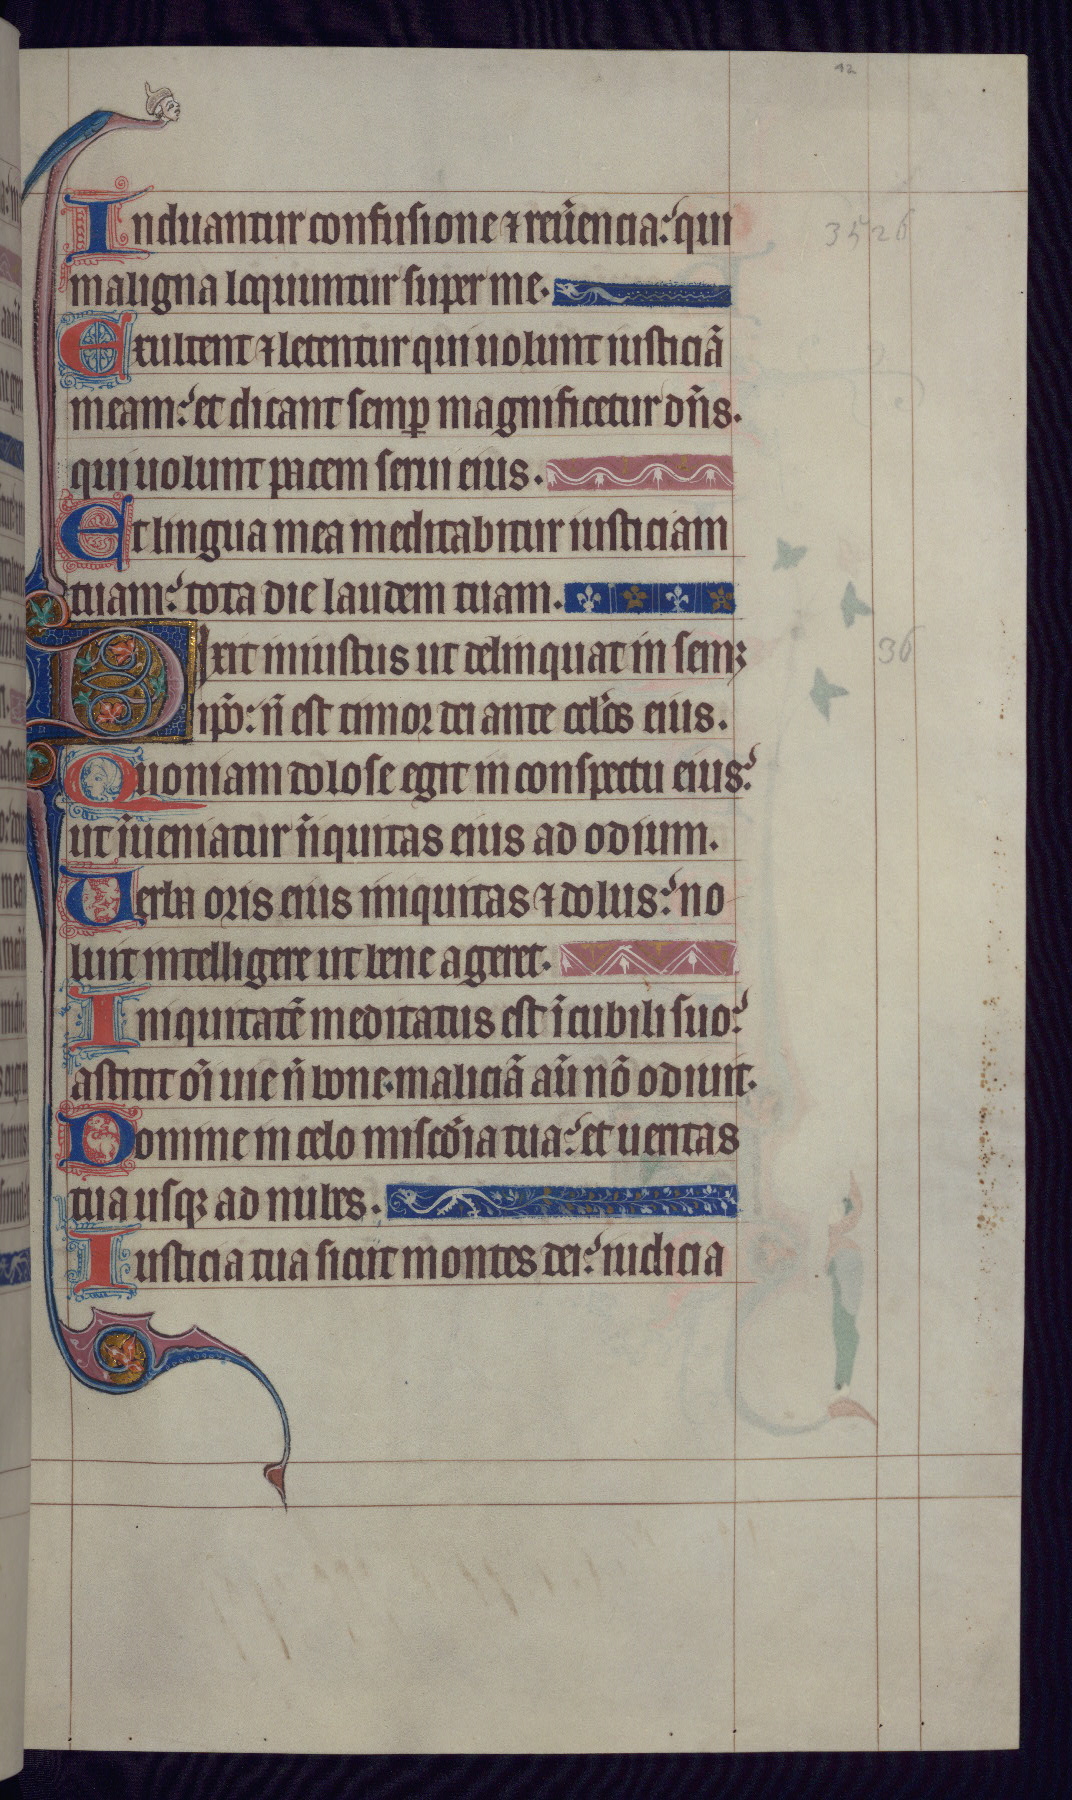 42
Induantur confusione ⁊ reu̅encia: qui
maligna loquuntur super me.
Exultent ⁊ letentur qui uolunt iusticiã
meam: et dicant semꝑ magnificetur dñs.
qui uolunt pacem serui eius.
Et lingua mea meditabitur iusticiam
tuam: tota die laudem tuam.
3526
Dixit iniustus ut delinquat in sem;
ip̃o: ñ est timor dei ante oc̃los eius.
36
Quoniam dolose egit in conspectu eius:
ut ĩueniatur ĩiquitas eius ad odium.
Uerba oris eius iniquitas ⁊ dolus: no
luit intelligere ut bene ageret.
Iniquitatẽ meditatus est ĩ cubili suo:
astitit oĩ uie ñ bone. maliciã aũ nõ odiuit.
Domine in celo misc̃dia tua: et ueritas
tua usqꝫ ad nubes.
Iusticia tua sicut montes dei: iudicia